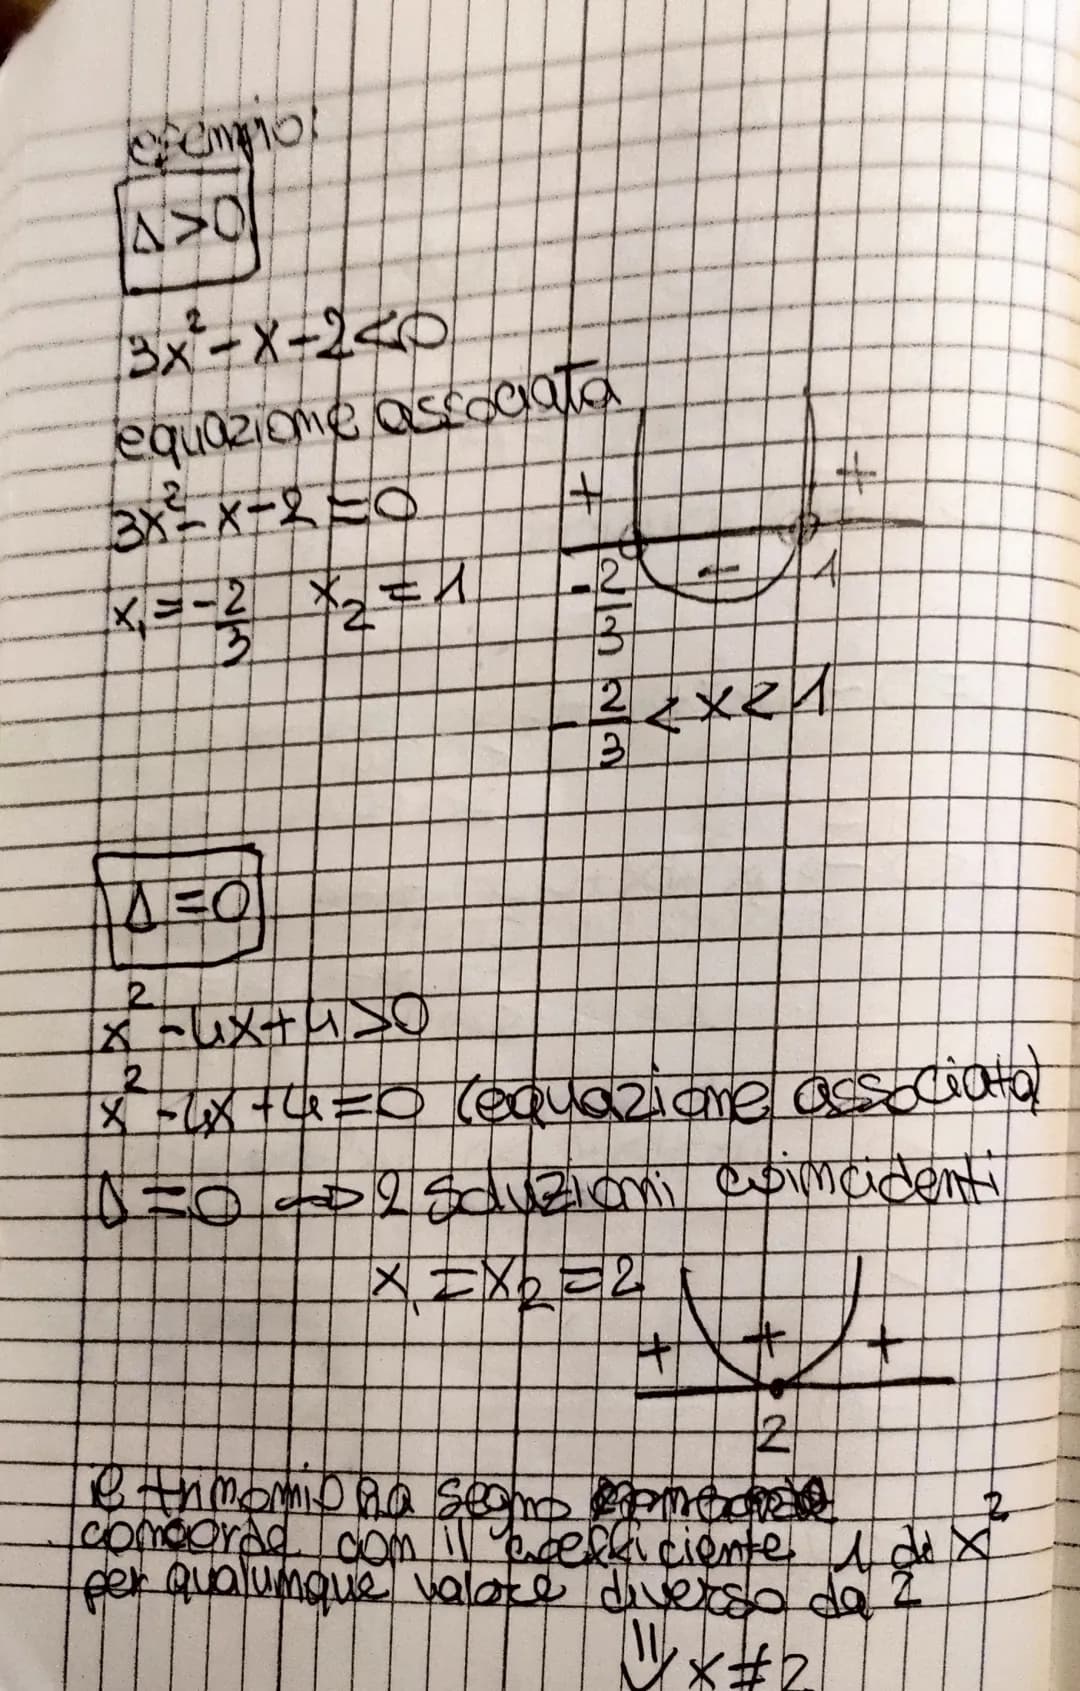 esempio:
Δ>0
3x²-x-2<0
equazione associata
3x²-x-2=0
x₁=-2/3 x₂=1
+ - +
-2/3 1
-2/3<x<1
Δ=0
x²-4x+4>0
x²-4x+4=0 (equazione associata)
Δ=0 => 2 soluzioni coincidenti
x₁=x₂=2
+ + +
2
il trinomio ha segno
concorde con il coefficiente 1 di x²
per qualunque valore diverso da 2
⇓ x≠2